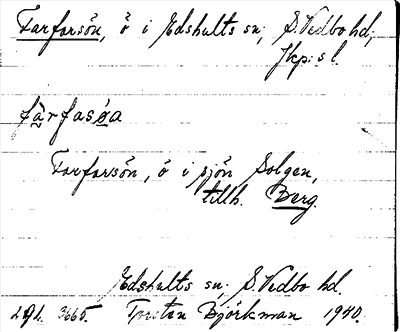 Farfarsön, ö i Edshults sn; S. Vedbo hd;
Jkp:s l.
fàrfasøa
Farfarsön, ö i sjön Solgen,
tillh. Berg.
Edshults sn; S. Vedbo hd.
Torsten Björkman 1940.